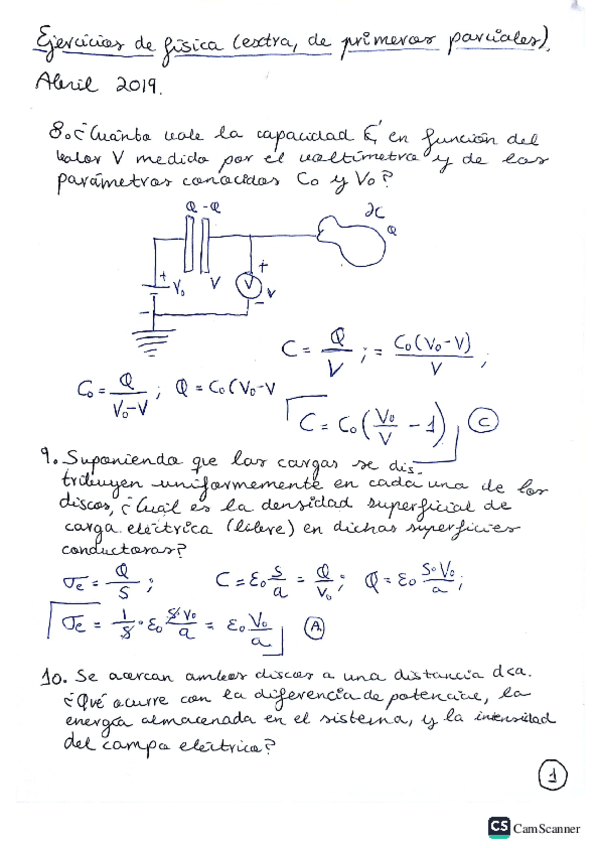 Ejercicios de física (extra, de primeros parciales).
Abril 2019.
8. ¿Cuánto vale la capacidad C, en función del
valor V medido por el voltímetro y de los
parámetros conocidos Co y Vo?
Q -Q
C
Q
+ Vo V V + V
- -
C = Q/V ; = Co(Vo-V)/V ;
Co = Q/(Vo-V) ; Q = Co(Vo-V
C = Co(Vo/V - 1) (C)
9. Suponiendo que las cargas se dis-
tribuyen uniformemente en cada una de los
discos, ¿Cuál es la densidad superficial de
carga eléctrica (libre) en dichas superficies
conductoras?
σe = Q/S ; C = ε0 S/a = Q/Vo ; Q = ε0 S·Vo/a ;
σe = 1/S · ε0 S·Vo/a = ε0 Vo/a (A)
10. Se acercan ambos discos a una distancia d<a.
¿Qué ocurre con la diferencia de potencial, la
energía almacenada en el sistema, y la intensidad
del campo eléctrico?
1
CS CamScanner